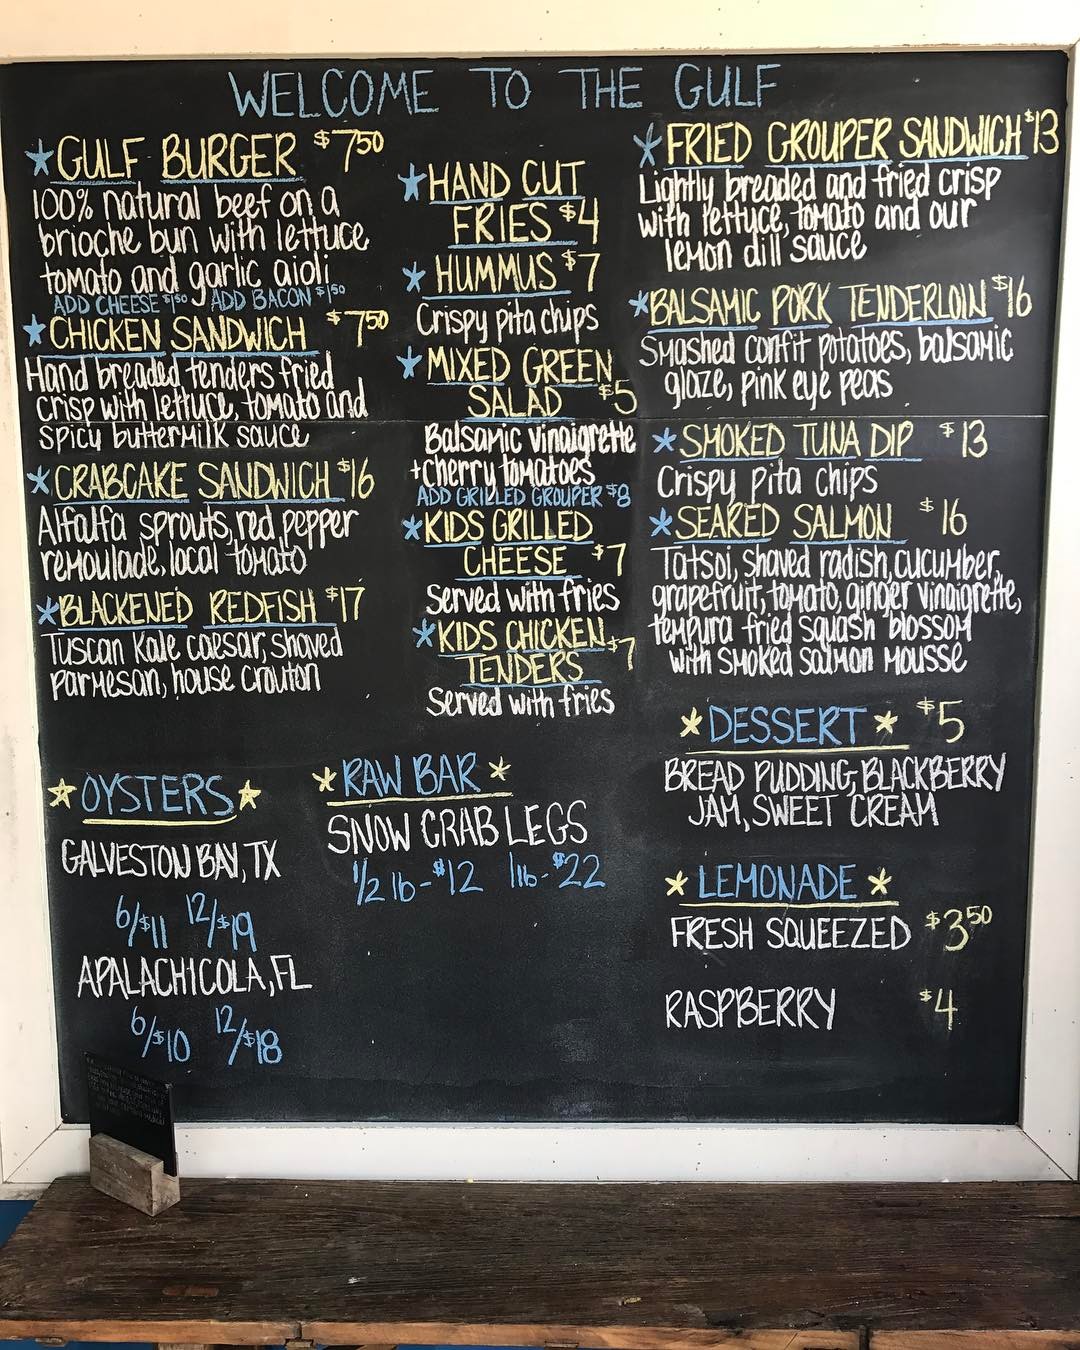 WELCOME TO THE GULF
*GULF BURGER $7.50
100% natural beef on a
brioche bun with lettuce
tomato and garlic aioli
ADD CHEESE $1.50 ADD BACON $1.50
*CHICKEN SANDWICH $7.50
Hand breaded tenders fried
crisp with lettuce, tomato and
spicy buttermilk sauce
*CRABCAKE SANDWICH $16
Alfalfa sprouts, red pepper
remoulade, local tomato
*BLACKENED REDFISH $17
Tuscan kale caesar, shaved
parmesan, house crouton
*HAND CUT
FRIES $4
*HUMMUS $7
Crispy pita chips
*MIXED GREEN
SALAD $5
Balsamic vinaigrette
+cherry tomatoes
ADD GRILLED GROUPER $8
*KIDS GRILLED
CHEESE $7
Served with fries
*KIDS CHICKEN
TENDERS $7
Served with fries
*FRIED GROUPER SANDWICH $13
Lightly breaded and fried crisp
with lettuce, tomato and our
lemon dill sauce
*BALSAMIC PORK TENDERLOIN $16
Smashed confit potatoes, balsamic
glaze, pink eye peas
*SMOKED TUNA DIP $13
Crispy pita chips
*SEARED SALMON $16
Tatsoi, shaved radish, cucumber,
grapefruit, tomato, ginger vinaigrette,
tempura fried squash blossom
with smoked salmon mousse
*OYSTERS*
GALVESTON BAY, TX
6/$11 12/$19
APALACHICOLA, FL
6/$10 12/$18
*RAW BAR*
SNOW CRAB LEGS
1/2 lb-$12 1lb-$22
*DESSERT* $5
BREAD PUDDING, BLACKBERRY
JAM, SWEET CREAM
*LEMONADE*
FRESH SQUEEZED $3.50
RASPBERRY $4